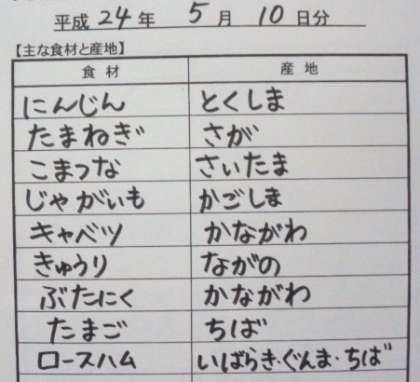 平成 24 年 5 月 10 日分
【主な食材と産地】
食材 産地
にんじん とくしま
たまねぎ さが
こまつな さいたま
じゃがいも かごしま
キャベツ かながわ
きゅうり ながの
ぶたにく かながわ
たまご ちば
ロースハム いばらき・ぐんま・ちば